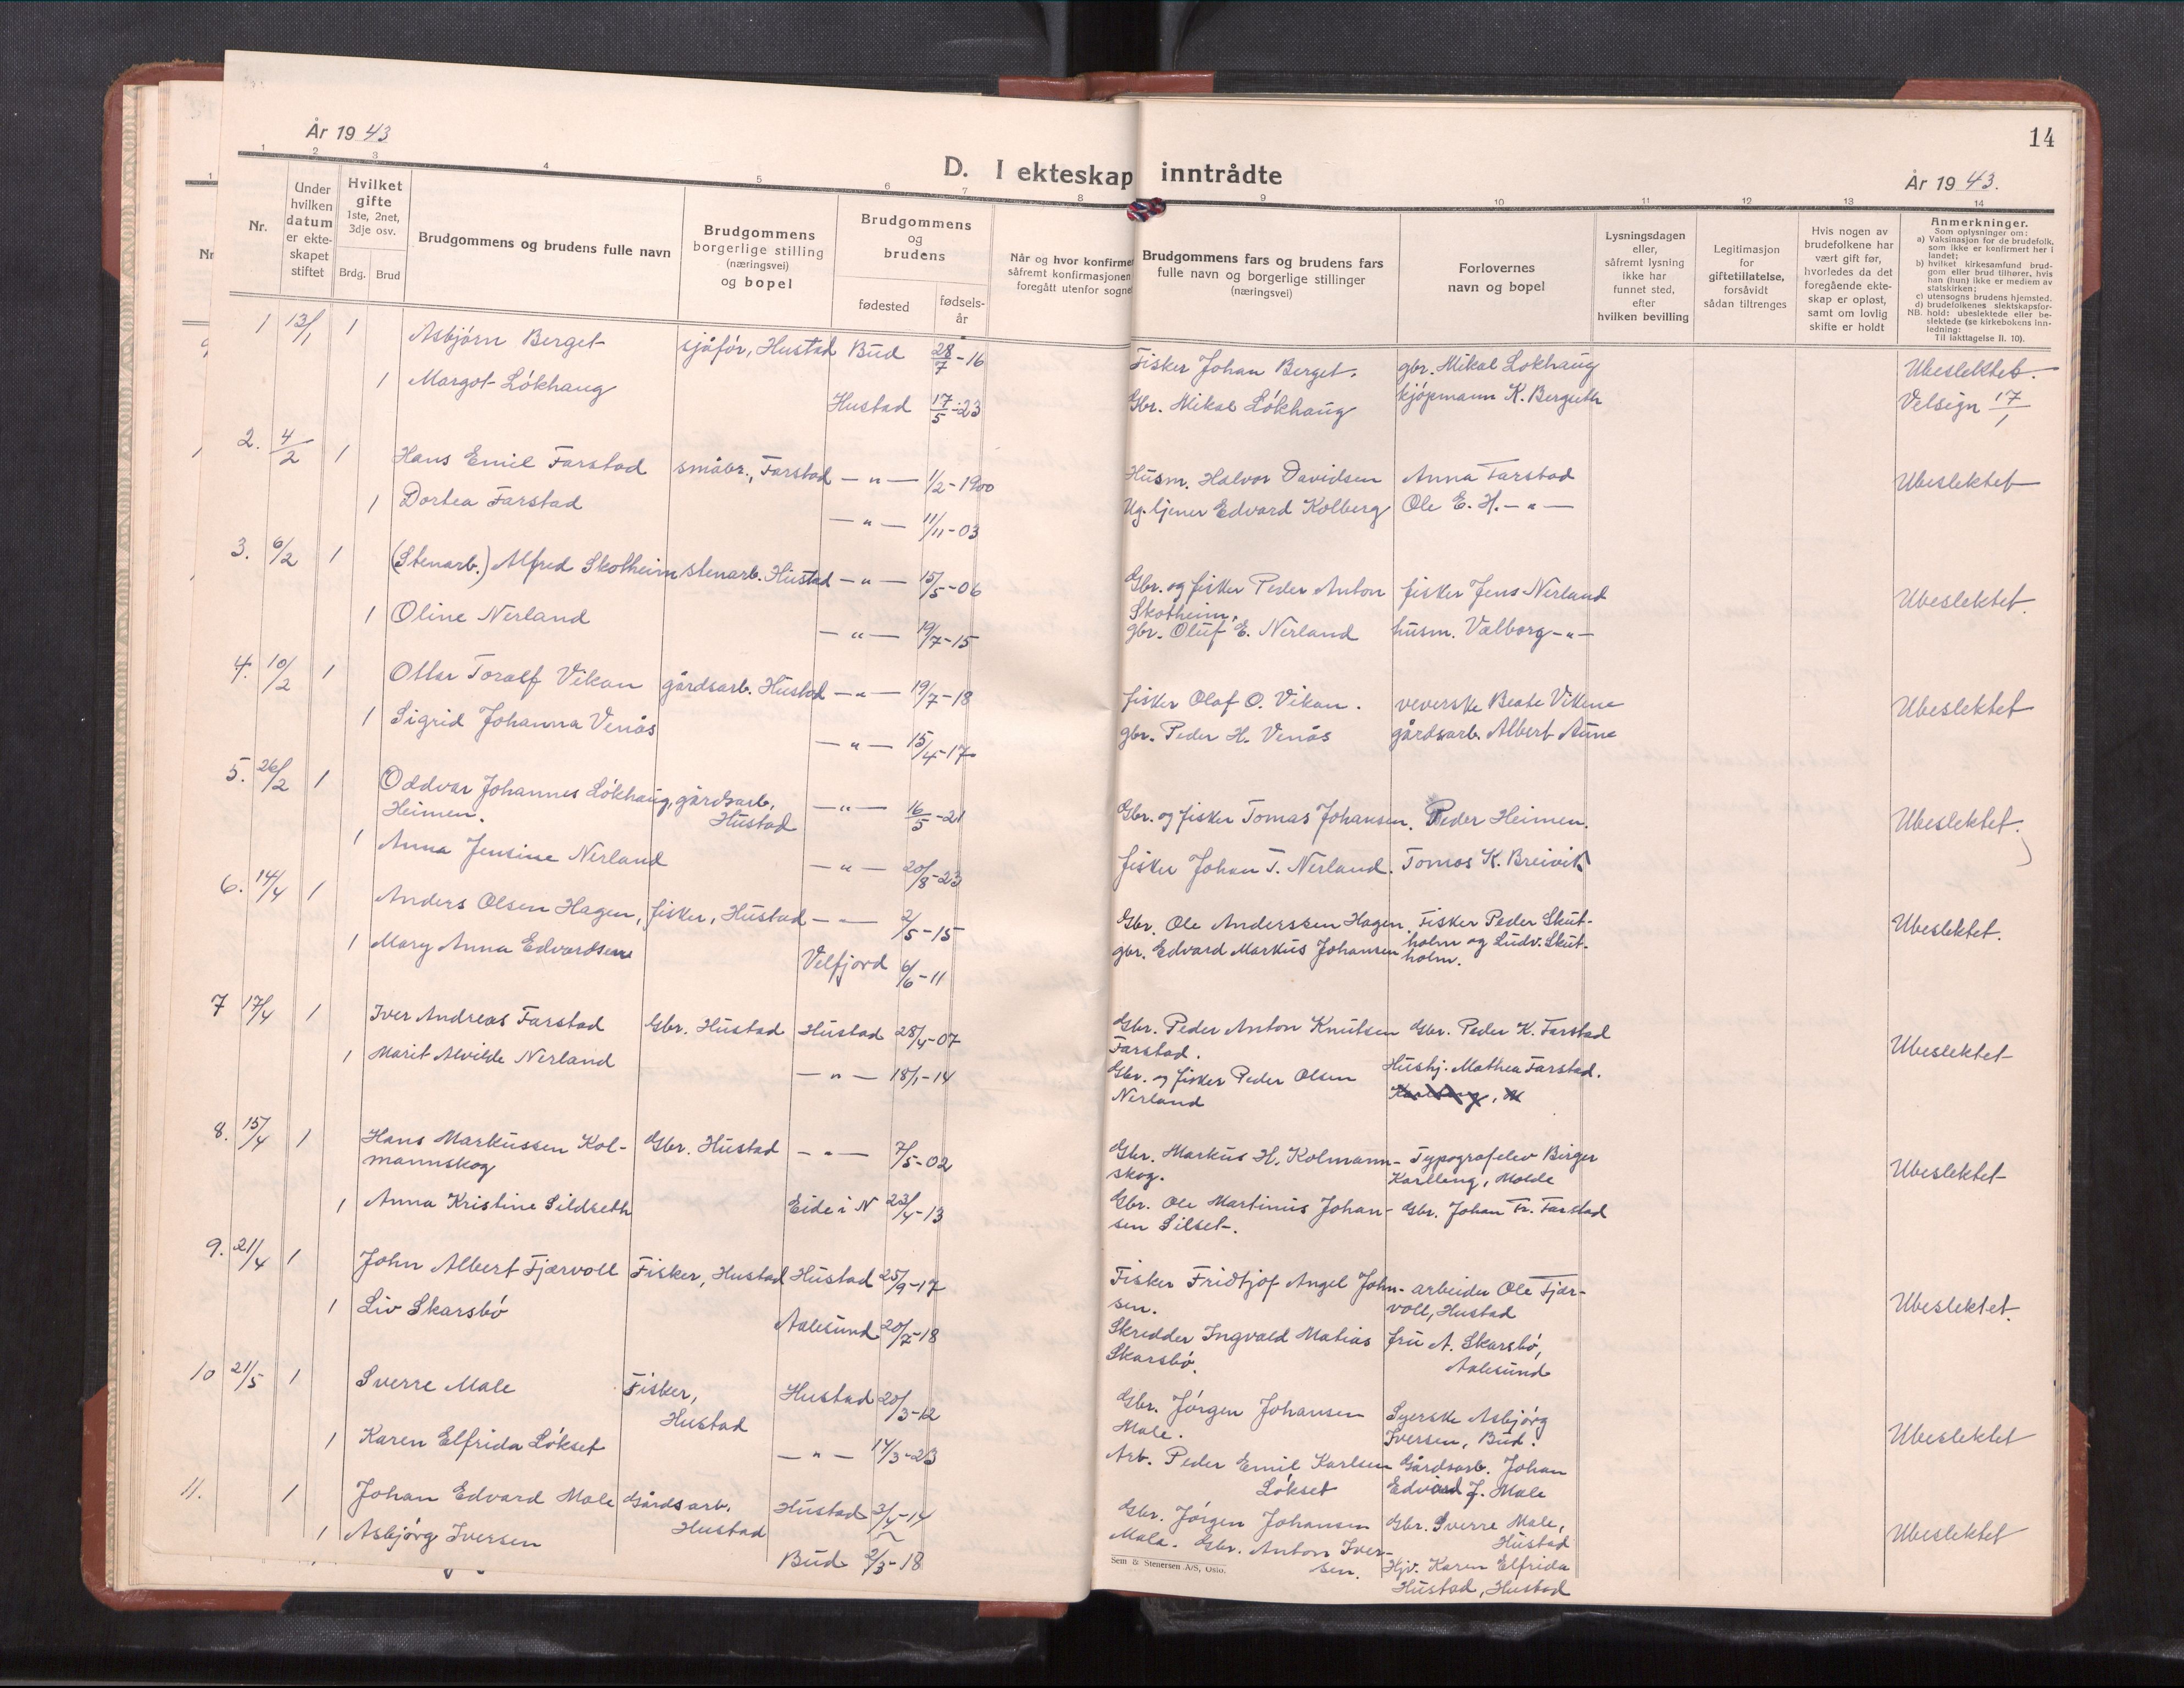 År 1943
14
D. I ekteskap inntrådte
År 1943.
1 2 3 4 5 6 7 8 9 10 11 12 13 14
Nr.
Under
hvilken
datum
er ekte-
skapet
stiftet
Hvilket
gifte
1ste, 2net,
3dje osv.
Brdg. Brud
Brudgommens og brudens fulle navn
Brudgommens
borgerlige stilling
(næringsvei)
og bopel
Brudgommens
og
brudens
fødested
fødsels-
år
Når og hvor konfirmer
såfremt konfirmasjonen
foregått utenfor sogne
Brudgommens fars og brudens fars
fulle navn og borgerlige stillinger
(næringsvei)
Forlovernes
navn og bopel
Lysningsdagen
eller,
såfremt lysning
ikke har
funnet sted,
efter
hvilken bevilling
Legitimasjon
for
giftetillatelse,
forsåvidt
sådan tiltrenges
Hvis nogen av
brudefolkene har
vært gift før,
hvorledes da det
foregående ekte-
skap er opløst,
samt om lovlig
skifte er holdt
Anmerkninger.
Som oplysninger om:
a) Vaksinasjon for de brudefolk,
som ikke er konfirmert her i
landet;
b) hvilket kirkesamfund brud-
gom eller brud tilhører, hvis
han (hun) ikke er medlem av
statskirken;
c) utensogns brudens hjemsted.
d) brudefolkenes slektskapsfor-
hold: ubeslektede eller be-
slektede (se kirkebokens inn-
ledning:
NB.
Til iakttagelse II. 10).
1 13/1 1 Asbjørn Berget sjåfør, Hustad Bud 28/7-16 Fisker Johan Berget. gbr. Mikal Løkhaug Ubeslektet.
1 Margot Løkhaug Hustad 17/5-23 Gbr. Mikal Løkhaug kjøpmann K. Bergseth Velsign 17/1
2. 4/2 1 Hans Emil Farstad småbr., Farstad —"— 1/2-1900 Husm. Halvor Davidsen Anna Farstad Ubeslektet
1 Dortea Farstad —"— 11/11-03 Ug. tjener Edvard Kolberg Ole E. H. —"—
3. 6/2 1 (Stenarb.) Alfred Skotheim stenarb. Hustad —"— 15/5-06 Gbr. og fisker Peder Anton fisker Jens Nerland Ubeslektet.
Skotheim,
1 Oline Nerland —"— 19/7-15 gbr. Oluf E. Nerland husm. Valborg —"—
4. 10/2 1 Ottar Toralf Vikan gårdsarb. Hustad —"— 19/7-18 fisker Olaf O. Vikan. veverske Beate Vikene Ubeslektet
1 Sigrid Johanna Venås —"— 15/4-17 gbr. Peder H. Venås gårdsarb. Albert Aune
5. 26/2 1 Oddvar Johannes Løkhaug, gårdsarb, —"— 16/5-21 Gbr. og fisker Tomas Johansen. Peder Heimen. Ubeslektet.
Heimen. Hustad
1 Anna Jensine Nerland —"— 20/8-23 fisker Johan T. Nerland. Tomas K. Breivik
6. 14/4 1 Anders Olsen Hagen, fisker, Hustad —"— 2/5-15 Gbr. Ole Anderssen Hagen. Fisker Peder Skut- Ubeslektet.
1 Mary Anna Edvardsen Velfjord 6/6-11 gbr. Edvard Markus Johansen holm og Ludv. Skut-
holm.
7 17/4 1 Iver Andreas Farstad Gbr. Hustad Hustad 28/4-07 Gbr. Peder Anton Knutsen Gbr. Peder K. Farstad Ubeslektet
Farstad.
1 Marit Alvilde Nerland —"— 18/1-14 Gbr. og fisker Peder Olsen Hushj. Mathea Farstad.
Nerland
8. 15/4 1 Hans Markussen Kol- Gbr. Hustad —"— 7/5-02 Gbr. Markus H. Kolmann- Typografelev Birger Ubeslektet
mannskog skog. Karlleng, Molde
1 Anna Kristine Sildseth Eide i N 23/4-13 Gbr. Ole Martinius Johan- Gbr. Johan Fr. Farstad
sen Silset.
9. 21/4 1 John Albert Fjærvoll Fisker, Hustad Hustad 25/9-17 Fisker Fridtjof Angel John- arbeider Ole Fjær- Ubeslektet.
sen. voll, Hustad
1 Liv Skarsbø Aalesund 20/7-18 Skredder Ingvald Matias fru A. Skarsbø,
Skarsbø. Aalesund
10 21/5 1 Sverre Male Fisker, Hustad 20/3-12 Gbr. Jørgen Johansen Syerske Asbjørg Ubeslektet
Hustad Male. Iversen, Bud.
1 Karen Elfrida Løkset —"— 14/3-23 Arb. Peder Emil Karlsen Gårdsarb. Johan
Løkset Edvard J. Male
11. 1 Johan Edvard Male Gårdsarb. Hustad 3/4-14 Gbr. Jørgen Johansen Gbr. Sverre Male, Ubeslektet
Hustad Hustad
1 Asbjørg Iversen Bud 2/3-18 Male. Gbr. Anton Iver- Hjv. Karen Elfrida
sen. Hustad, Hustad
Sem & Stenersen A/S, Oslo.